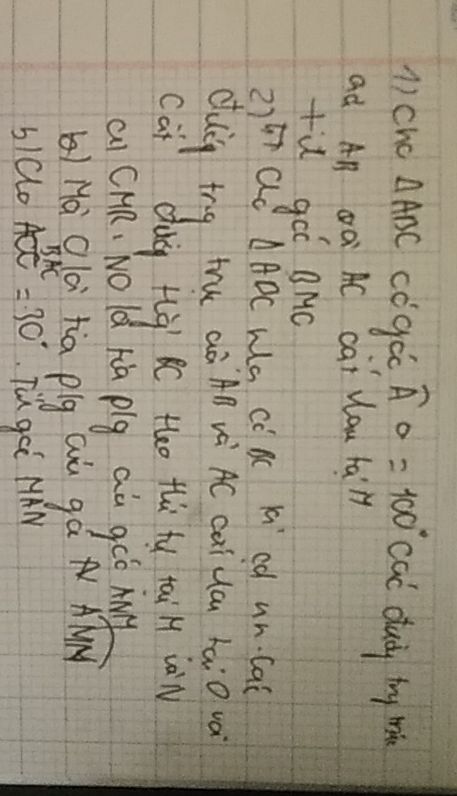 1) Cho △ABC có góc Â = 100° các đường trung trực
của AB và AC cắt nhau tại M
Tính góc BMC
2) Cho △ABC có BC là cạnh
đường trung trực của AB và AC cắt nhau tại O và
cắt đường thẳng BC theo thứ tự tại M và N
a) CMR: NO là tia p/g của góc ANM
b) MO là tia p/g của góc AMN
b) Cho BAC = 30°. Tính góc MAN